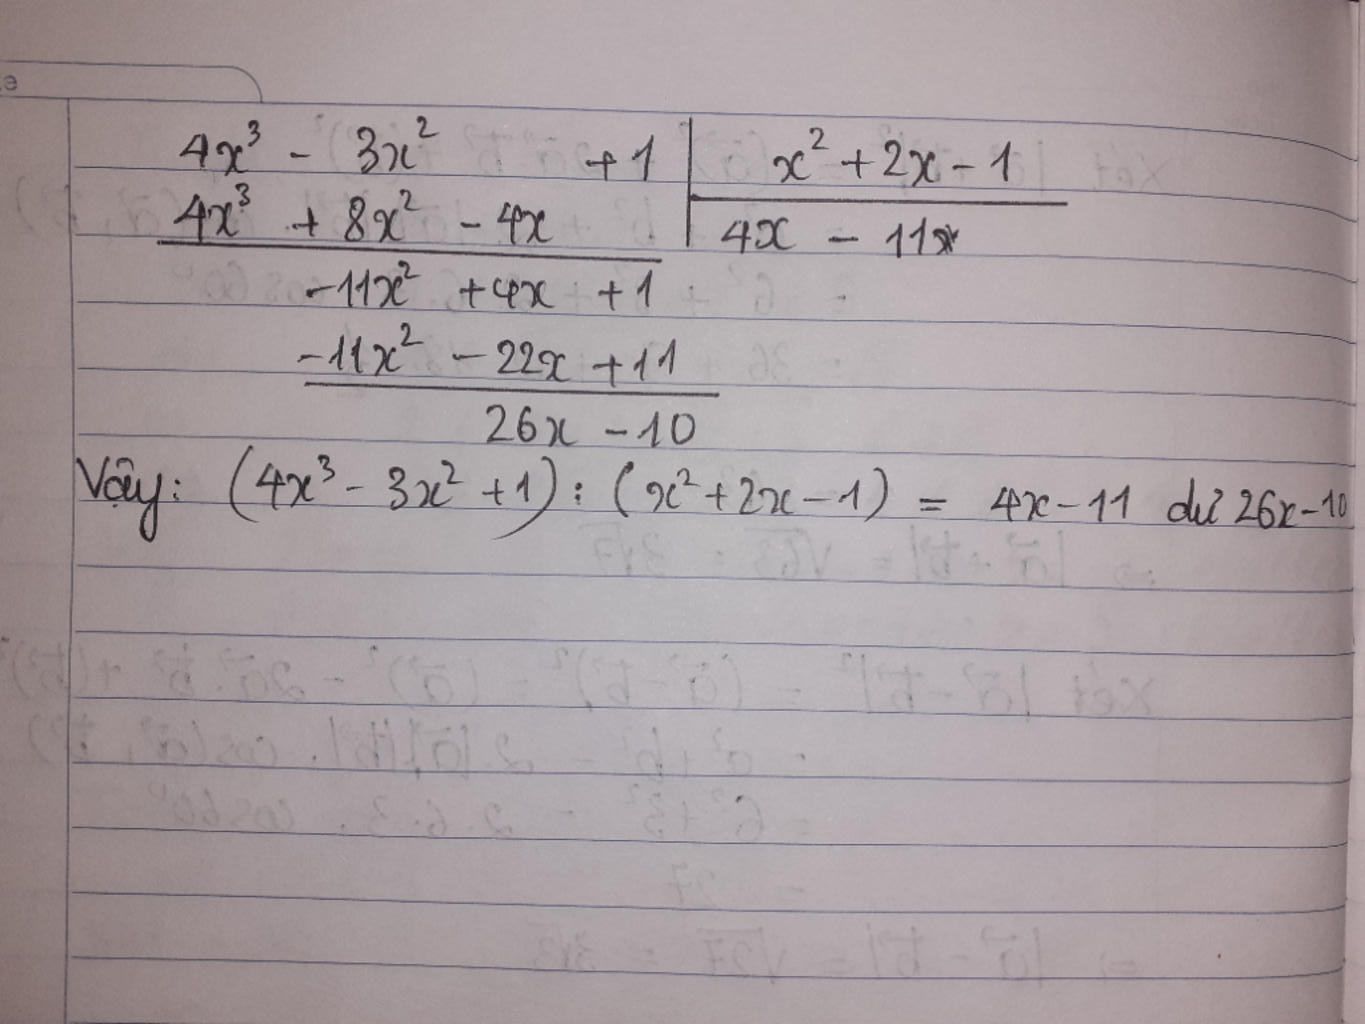 4x³ - 3x² +1 | x² + 2x - 1
4x³ + 8x² - 4x | 4x - 11
-11x² +4x +1
-11x² - 22x + 11
26x - 10
Vậy: (4x³ - 3x² + 1) : (x² + 2x - 1) = 4x - 11 dư 26x - 10